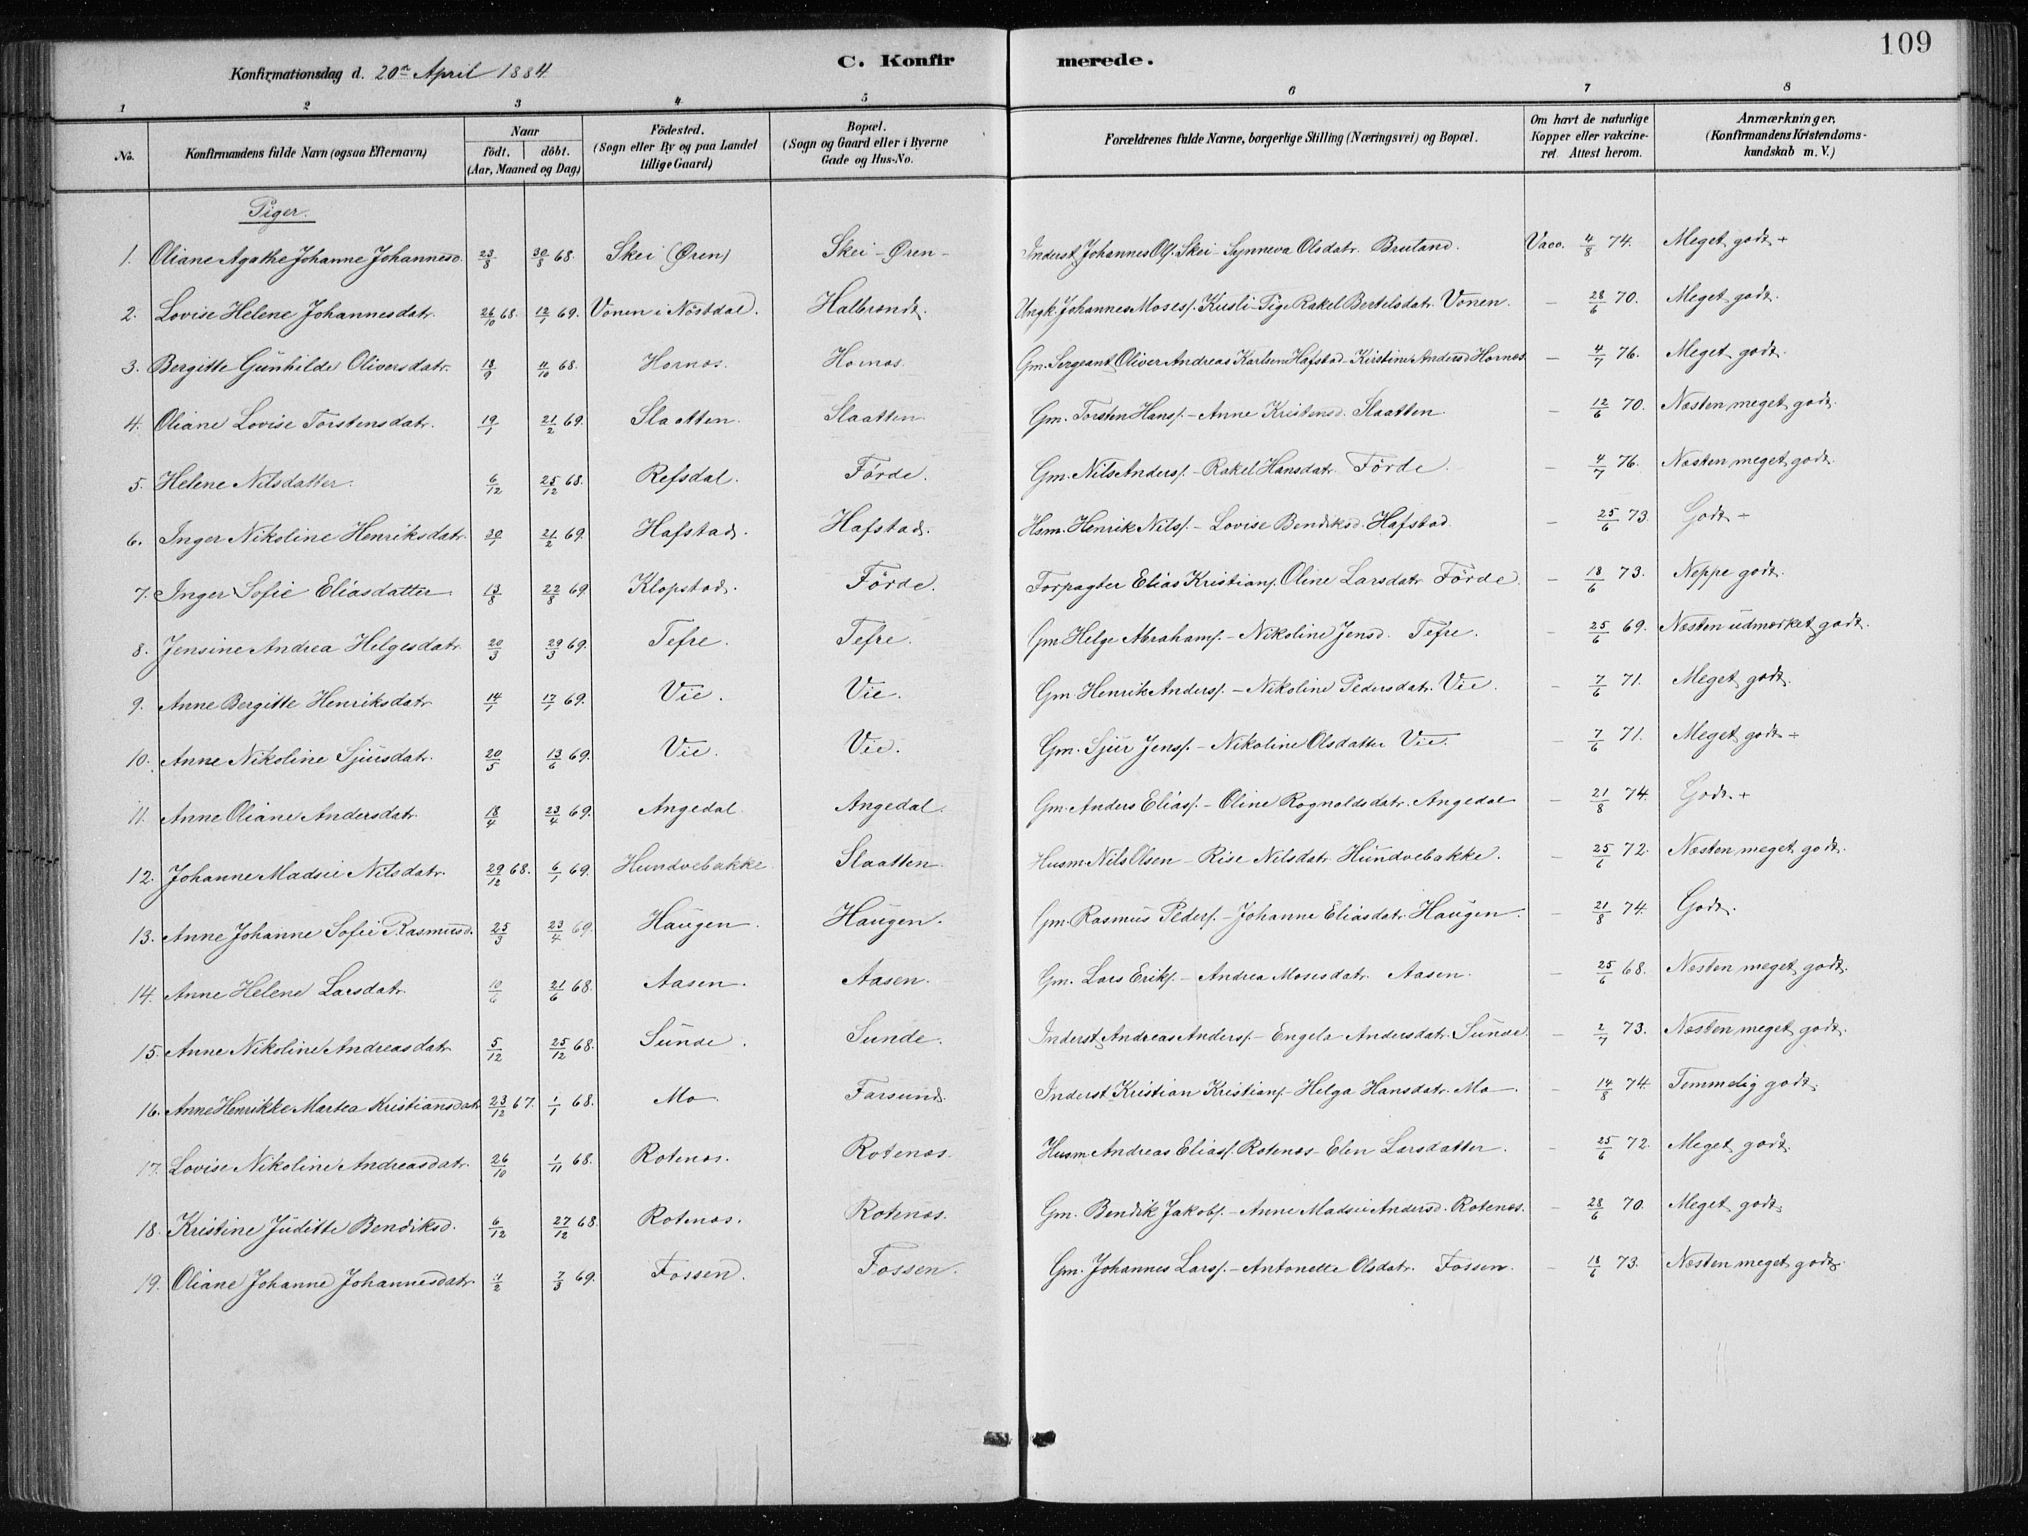 109
Konfirmationsdag d. 20de April 1884.
C. Konfirmerede.
1 2 3 4 5 6 7 8
No. Konfirmandens fulde Navn (ogsaa Efternavn) Naar födt. döbt. (Aar, Maaned og Dag) Födested. (Sogn eller By og paa Landet tillige Gaard) Bopæl. (Sogn og Gaard eller i Byerne Gade og Hus-No. Forældrenes fulde Navne, borgerlige Stilling (Næringsvei) og Bopæl. Om havt de naturlige Kopper eller vakcineret Attest herom. Anmærkninger, (Konfirmandens Kristendomskundskab m. V.)
Piger.
1. Oliane Agathe Johanne Johannesd. 23/8 30/8 68. Skei (Øren) Skei - Øren - Inderst Johannes Ols. Skei - Synneva Olsdatr. Bruland. Vacc. 4/8 74. Meget godt +
2. Lovise Helene Johannesdatr. 26/10 68. 12/1 69. Vonen i Nöstdal. Halbrendt. Ungk. Johannes Moses. Kusli - Pige Rakel Bertelsdatr. Vonen. - 28/6 70. Meget godt.
3. Bergitte Gunhilde Oliversdatr. 18/9 11/10 68. Hornæs. Hornæs. Gm. Sergeant Oliver Andreas Karlsen Hafstad - Kirstine Andersd Hornæs - 4/7 76. Meget godt.
4. Oliane Lovise Torstensdatr. 19/1 21/2 69. Slaatten. Slaatten Gm. Torsten Hans. - Anne Kristensd. Slaatten. - 12/6 70. Næsten meget godt.
5. Helene Nilsdatter. 6/12 25/12 68. Refsdal. Förde. Gm. Nils Anders. - Rakel Hansdatr. Förde. - 4/7 76. Næsten meget godt.
6. Inger Nikoline Henriksdatr. 30/1 21/2 69. Hafstad. Hafstad. Hsm. Henrik Nils. - Lovise Bendiksd. Hafstad. - 25/6 73. Godt -
7. Inger Sofie Eliasdatter 13/8 22/8 69. Klopstad. Förde. Forpagter Elias Kristians. Oline Larsdatr. Förde. - 18/6 73. Neppe godt.
8. Jensine Andrea Helgesdatr. 20/3 29/3 69. Tefre. Tefre. Gm Helge Abrahams. - Nikoline Jensd. Tefre. - 25/6 69. Næsten udmærket godt.
9. Anne Bergitte Henriksdatr. 14/1 17/1 69. Vie. Vie. Gm. Henrik Anders. - Nikoline Pedersdatr. Vie. - 7/6 71. Meget godt.
10. Anne Nikoline Sjursdatr. 20/5 13/6 69. Vie. Vie. Gm. Sjur Jens. - Nikoline Olsdatter Vie. - 7/6 71. Meget godt +
11. Anne Oliane Andersdatr. 18/4 23/4 69. Angedal. Angedal. Gm. Anders Elias. - Oline Rognaldsdatr. Angedal - 21/8 74. Godt. +
12. Johanne Madsie Nilsdatr. 29/12 68. 6/1 69. Hundvebakke. Slaatten Husm Nils Olsen - Rise Nilsdatr Hundvebakke. - 25/6 72. Næsten meget godt.
13. Anne Johanne Sofie Rasmusd. 25/3 23/4 69. Haugen. Haugen. Gm. Rasmus Peders. - Johanne Eliasdatr. Haugen. - 21/8 74. Godt.
14. Anne Helene Larsdatr. 10/6 21/6 68. Aasen. Aasen. Gm. Lars Eriks. - Andrea Mosesdatr. Aasen. - 25/6 68. Næsten meget godt.
15. Anne Nikoline Andreasdatr 5/12 25/12 68. Sunde. Sunde. Inderst Andreas Anders. - Engela Andersdatr. Sunde. - 2/7 73. Næsten meget godt.
16. Anne Henrikke Martea Kristiansdatr 23/12 67. 1/1 68. Mo Farsund. Inderst Kristian Kristians. - Helga Hansdatr. Mo - - 14/8 74. Temmelig godt.
17. Lovise Nikoline Andreasdatr. 26/10 1/11 68. Rotenæs. Rotenæs. Husm Andreas Elias. Rotenæs - Elen Larsdatter. - 25/6 72. Meget godt.
18. Kristine Juditte Bendiksd. 6/12 27/12 68. Rotenæs. Rotenæs. Gm. Bendik Jakobs. - Anne Madsie Andersd. Rotenæs. - 28/6 70. Meget godt.
19. Oliane Johanne Johannesdatr. 11/2 7/3 69. Fossen. Fossen. Gm. Johannes Lars. - Antonette Olsdatr. Fossen. - 18/6 73. Næsten meget godt.